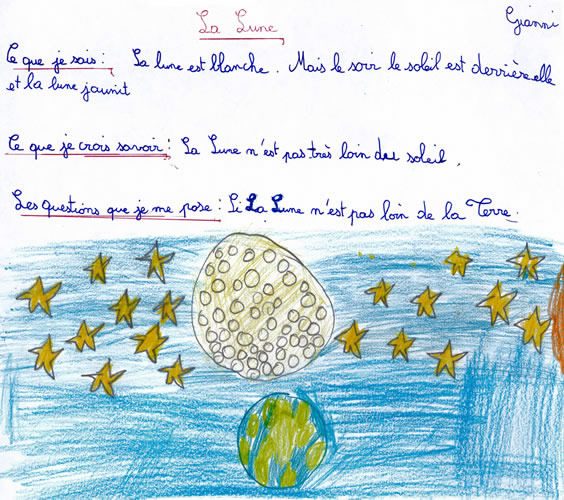 La Lune
Gianni
Ce que je sais : La lune est blanche. Mais le soir le soleil est derrière elle
et la lune jaunit
Ce que je crois savoir : La Lune n'est pas très loin du soleil.
Les questions que je me pose : Si La Lune n'est pas loin de la Terre.